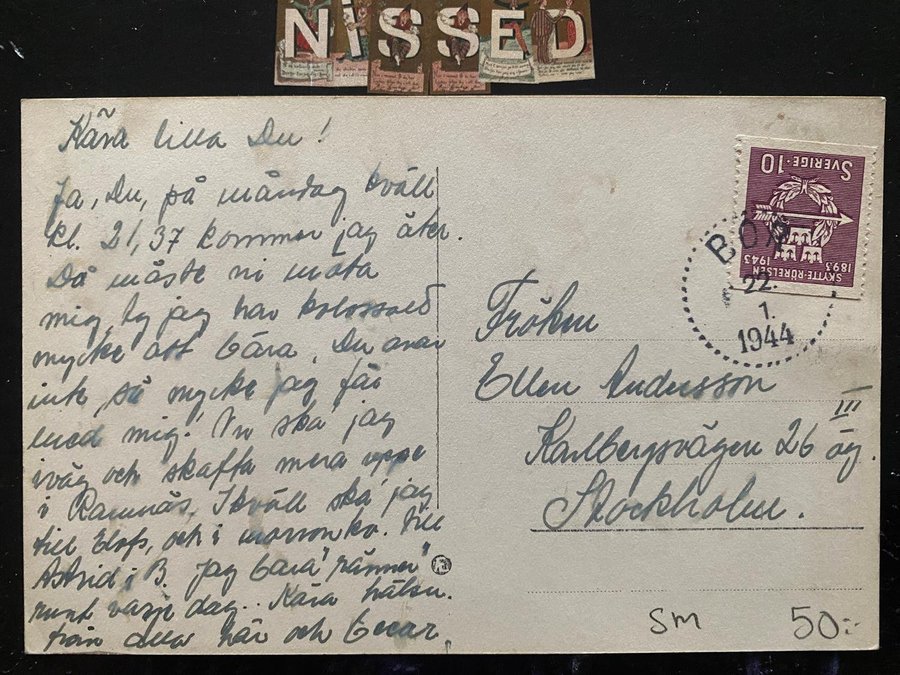 NiSSED
Kära lilla Du!
Ja, Du, på måndag kväll
kl. 21,37 kommer jag åter.
Då måste ni möta
mig, ty jag har kolossalt
mycke att bära. Du anar
inte så mycke jag får
med mig. Nu ska jag
iväg och skaffa mera uppe
i Ramnäs. Ikväll ska jag
till Elofs, och i morron kv. till
Astrid i B. Jag bara "ränner"
runt varje dag.. Kära häls.
från alla här och
SVERIGE·10
SKYTTE-RÖRELSEN
1893 1943
22.
1.
1944
Fröken
Ellen Andersson
Karlbergsvägen 26 ög.
III
Stockholm.
SM 50:-